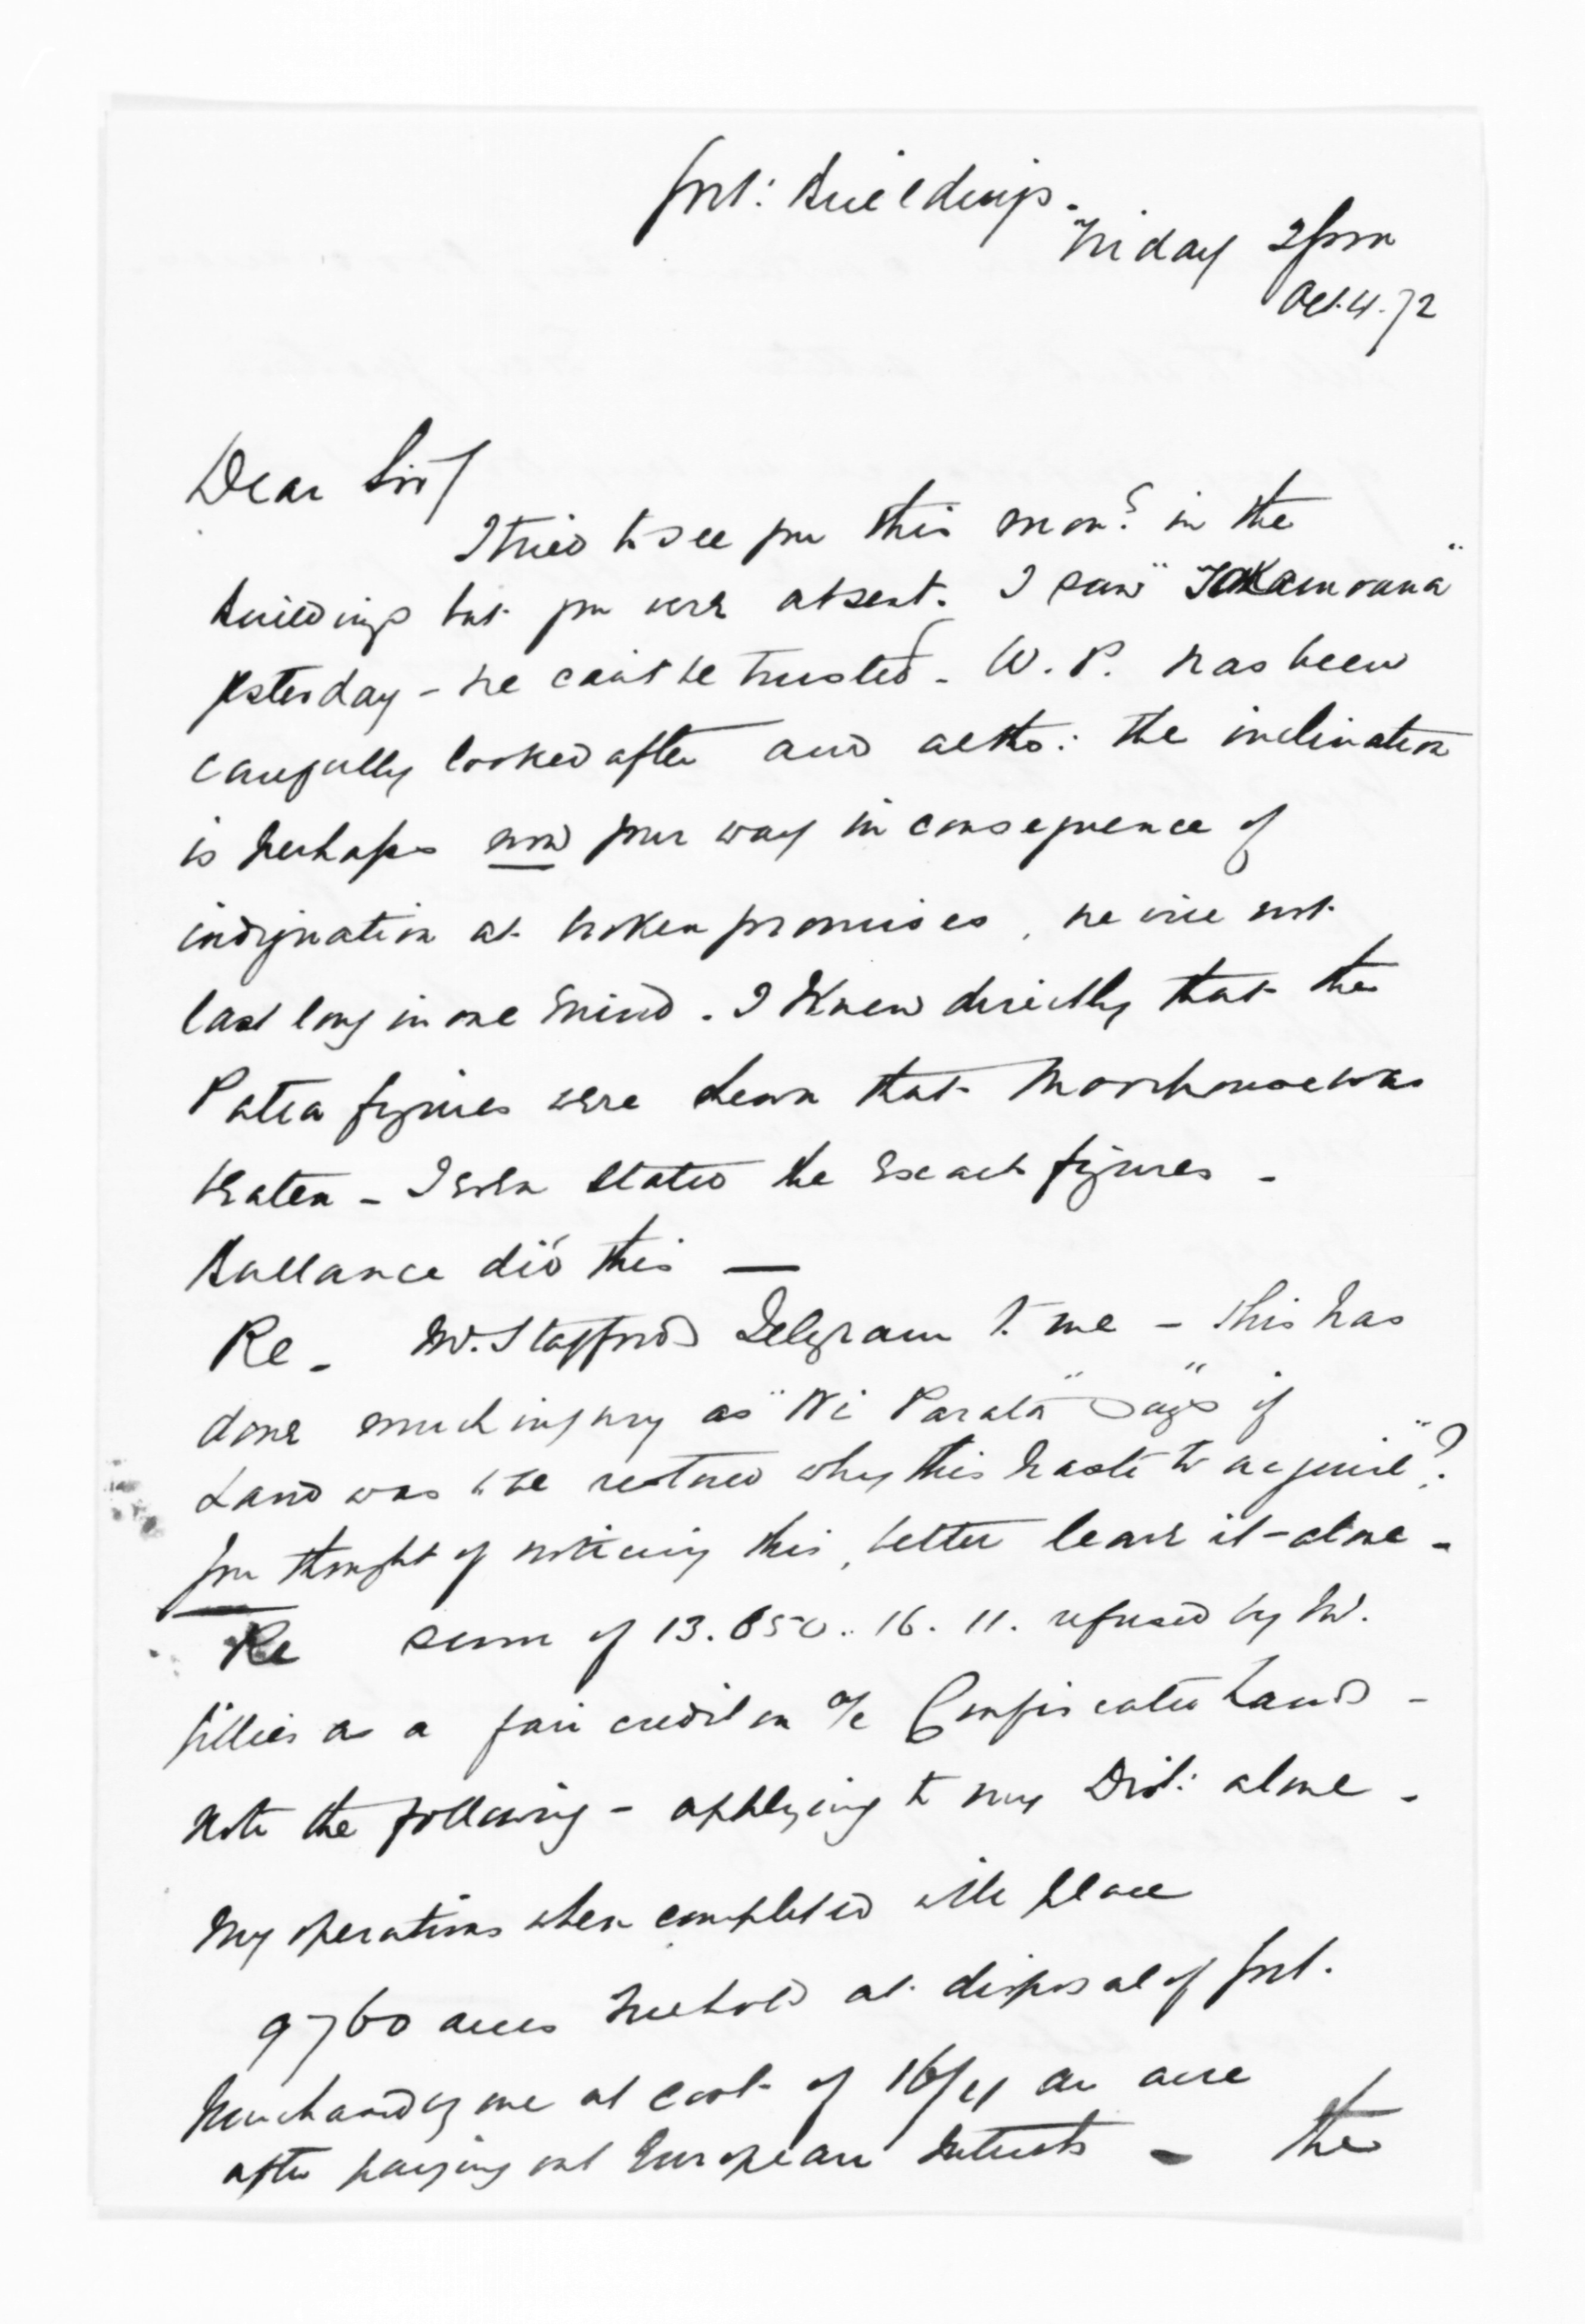 Govt: Buildings.
Friday 2pm
Oct. 4. 72
Dear Sir/
I tried to see you this morng in the
buildings but you were absent. I saw "Takamoana"
yesterday - he can't be trusted. W. P. has been
carefully looked after and altho: the inclination
is perhaps now your way in consequence of
indignation at broken promises, he will not
last long in one mind. I knew directly that the
Patea figures were shewn that Moorhouse was
beaten - I even stated the exact figures -
Ballance did this —
Re - Mr. Stafford's Telegram to me - this has
done much injury as "Wi Parata" says "if
Land was to be restored why this haste to acquire"?
You thought of noticing this, better leave it alone -
Re sum of 13.650.. 16. 11. refused by Mr.
Gillies as a fair credit on a/c Confiscated Lands -
Note the following - applying to my Dist: alone -
My operations when completed will place
9760 acres freehold at disposal of Govt.
Purchased by me at cost of 16/11 an acre
after paying out European Interests - the